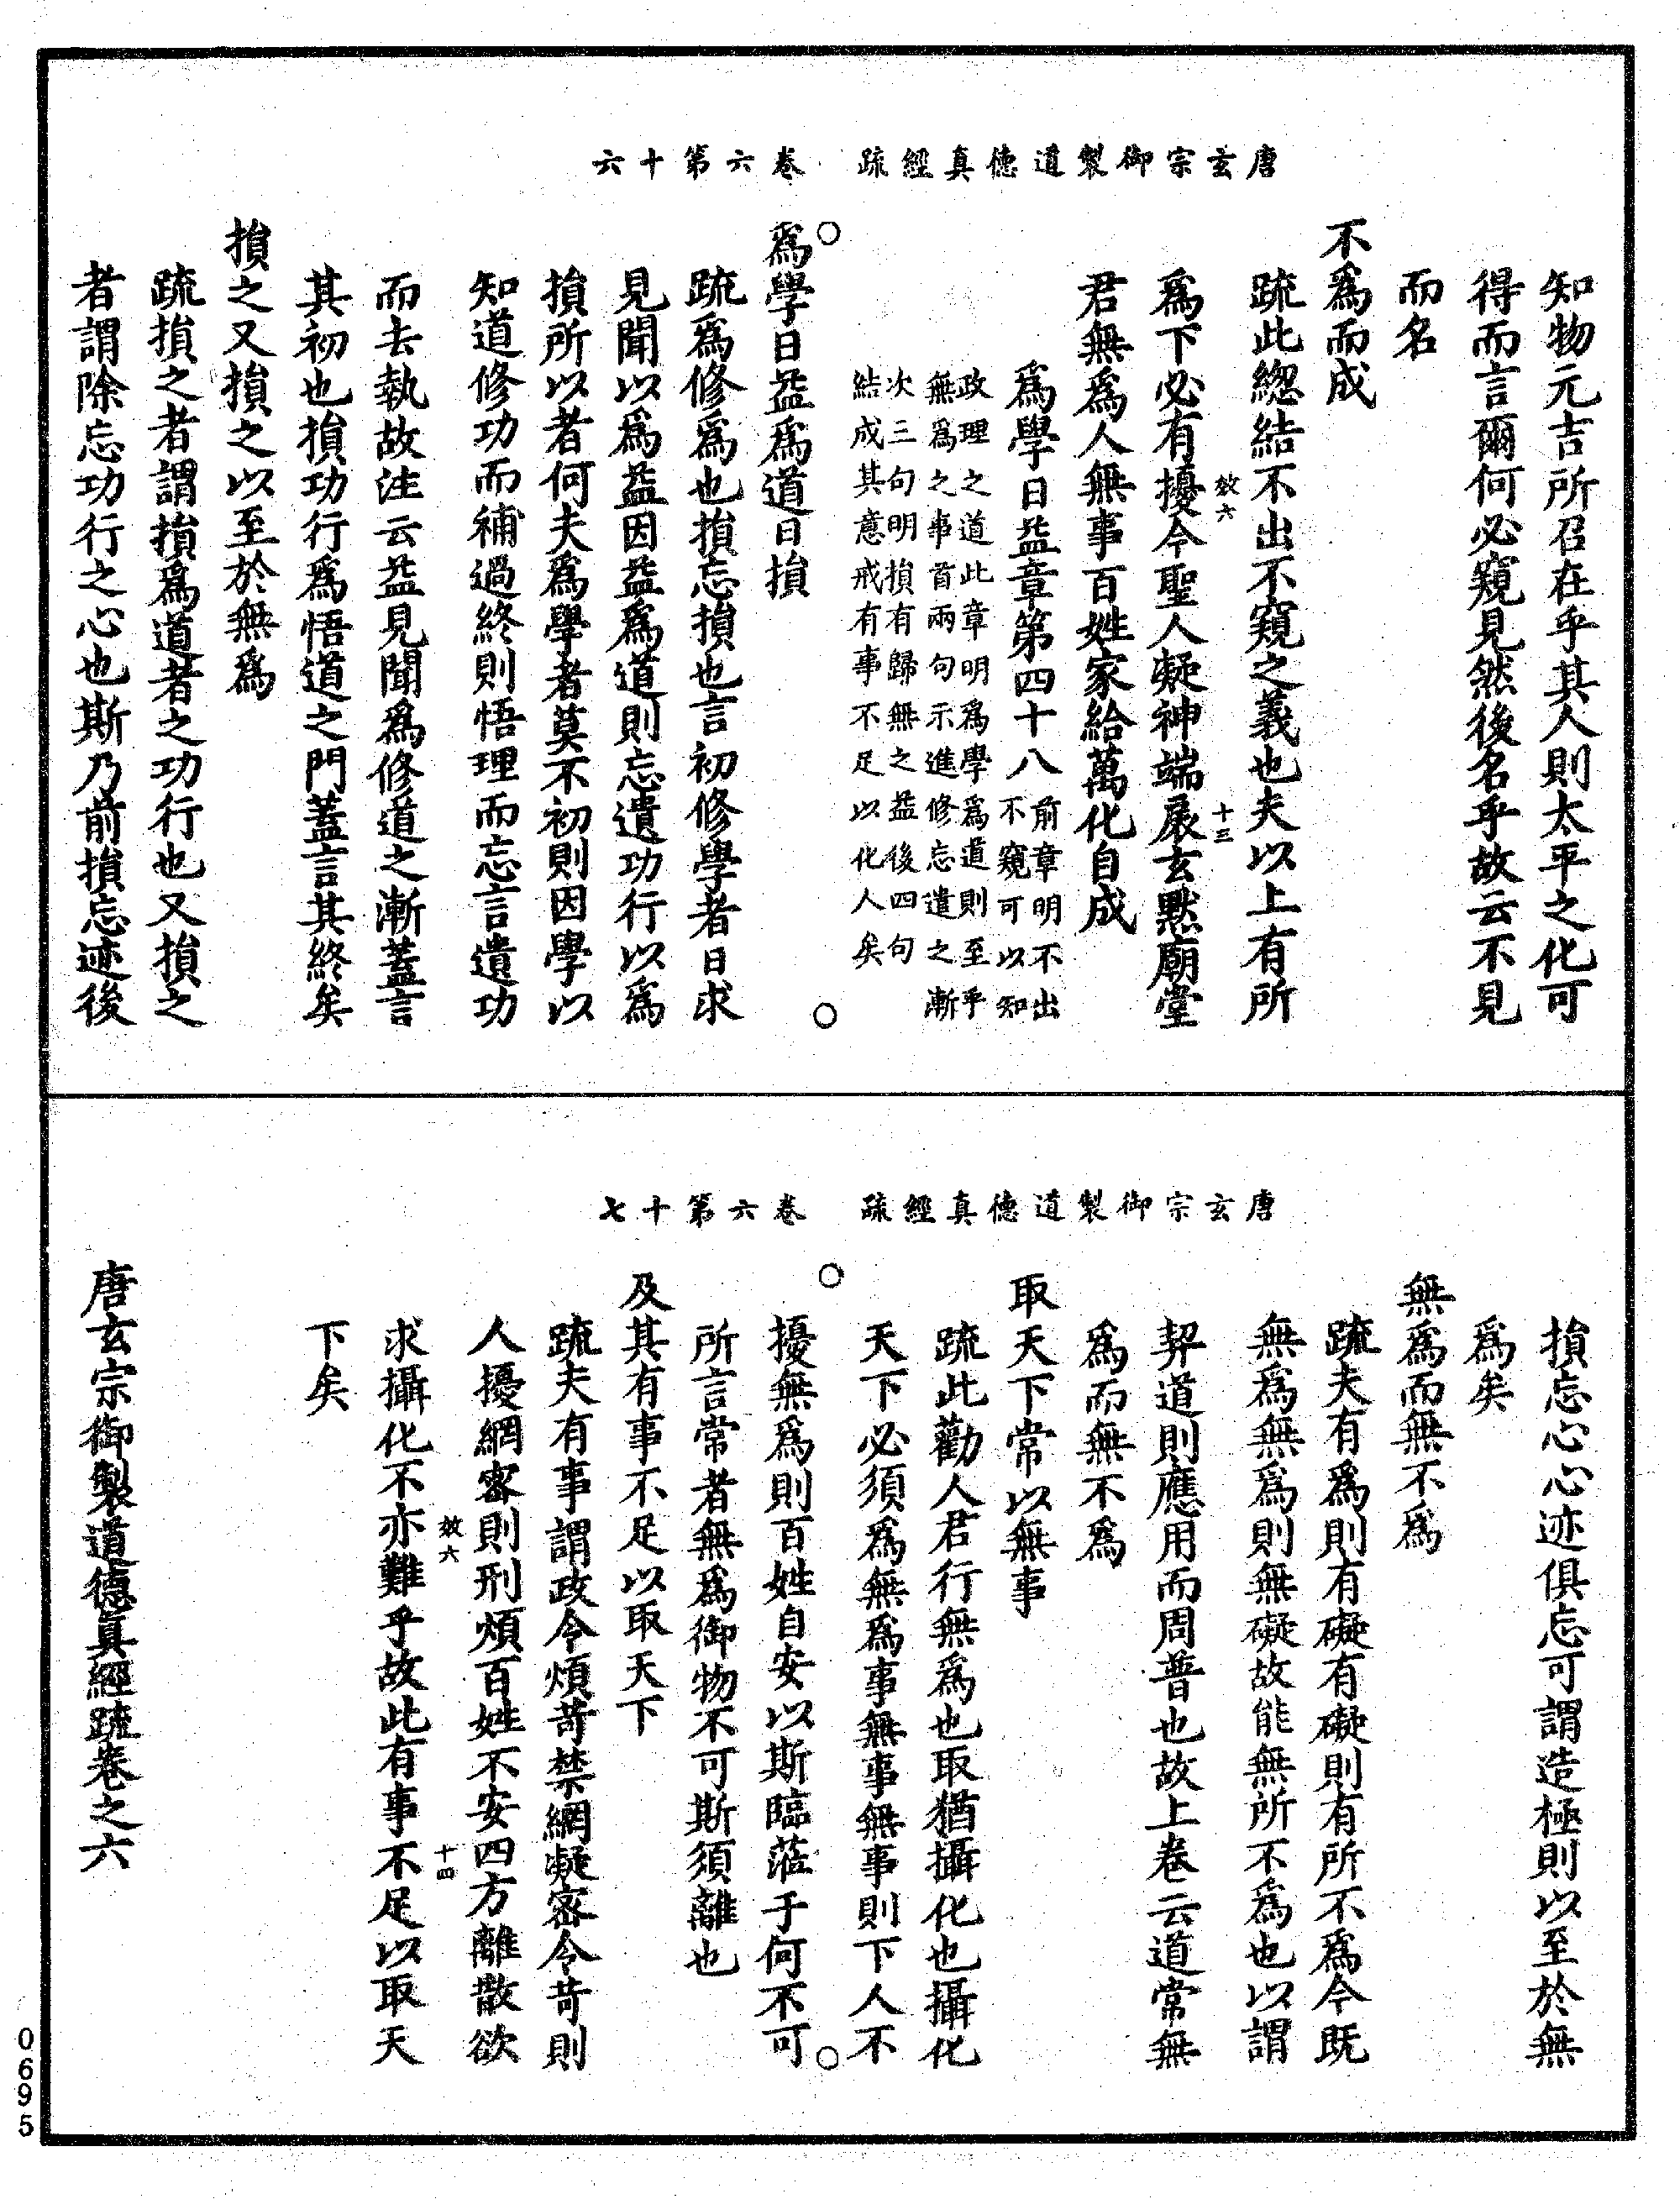 唐玄宗御製道德真經疏　卷六第十六
知物元吉所召在乎其人則太平之化可
得而言爾何必窺見然後名乎故云不見
而名
不爲而成
疏此緫結不出不窺之義也夫以上有所
效六　十三
爲下必有擾今聖人凝神端扆玄默廟堂
君無爲人無事百姓家給萬化自成
爲學日益章第四十八
前章明不出
不窺可以知
政理之道此章明爲學爲道則至乎
無爲之事首兩句示進修忘遣之漸
次三句明損有歸無之益後四句
結成其意戒有事不足以化人矣
○
爲學日益爲道日損
○
疏爲修爲也損忘損也言初修學者日求
見聞以爲益因益爲道則忘遣功行以爲
損所以者何夫爲學者莫不初則因學以
知道修功而補過終則悟理而忘言遺功
而去執故注云益見聞爲修道之漸蓋言
其初也損功行爲悟道之門蓋言其終矣
損之又損之以至於無爲
疏損之者謂損爲道者之功行也又損之
者謂除忘功行之心也斯乃前損忘迹後
唐玄宗御製道德真經疏　卷六第十七
損忘心心迹俱忘可謂造極則以至於無
爲矣
無爲而無不爲
疏夫有爲則有礙有礙則有所不爲今既
無爲無爲則無礙故能無所不爲也以謂
契道則應用而周普也故上卷云道常無
爲而無不爲
取天下常以無事
疏此勸人君行無爲也取猶攝化也攝化
天下必須爲無爲事無事無事則下人不
○
擾無爲則百姓自安以斯臨蒞于何不可
○
所言常者無爲御物不可斯須離也
及其有事不足以取天下
疏夫有事謂政令煩苛禁網凝密令苛則
人擾網密則刑煩百姓不安四方離散欲
效六　十四
求攝化不亦難乎故此有事不足以取天
下矣
唐玄宗御製道德真經疏卷之六
0695